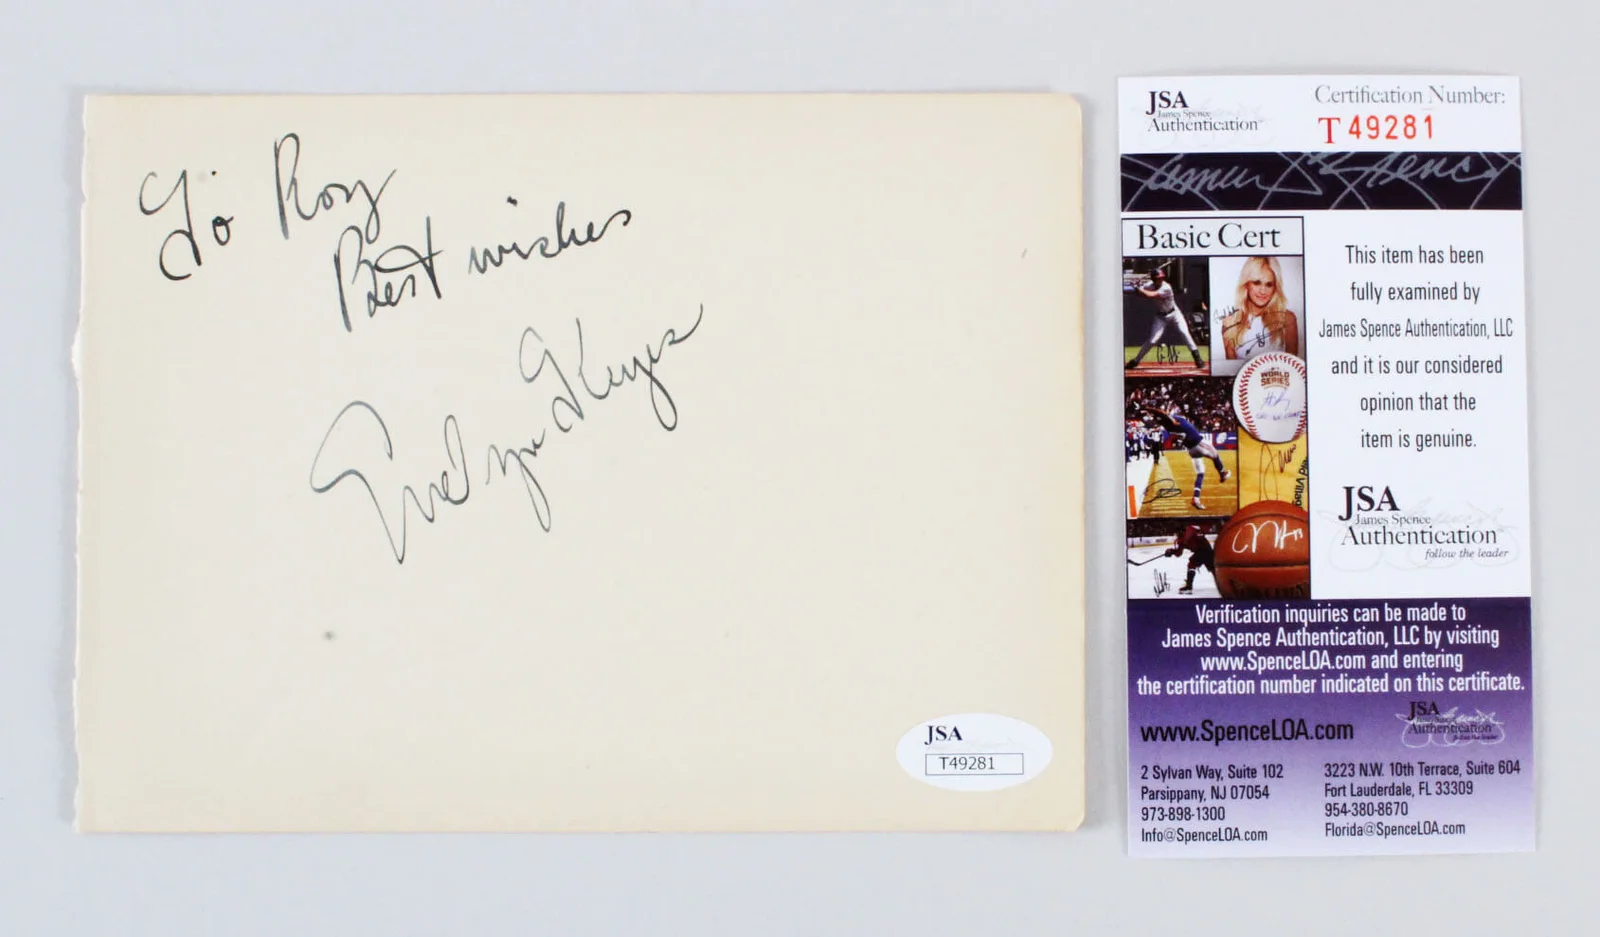 To Roy
Best wishes
Evelyn Keyes
JSA
T49281
JSA
James Spence
Authentication
Certification Number:
T 49281
James Spence
Basic Cert
WORLD
SERIES
This item has been
fully examined by
James Spence Authentication, LLC
and it is our considered
opinion that the
item is genuine.
JSA
James Spence
Authentication
follow the leader
Verification inquiries can be made to
James Spence Authentication, LLC by visiting
www.SpenceLOA.com and entering
the certification number indicated on this certificate.
www.SpenceLOA.com
JSA
Authentication
2 Sylvan Way, Suite 102
Parsippany, NJ 07054
973-898-1300
Info@SpenceLOA.com
3223 N.W. 10th Terrace, Suite 604
Fort Lauderdale, FL 33309
954-380-8670
Florida@SpenceLOA.com